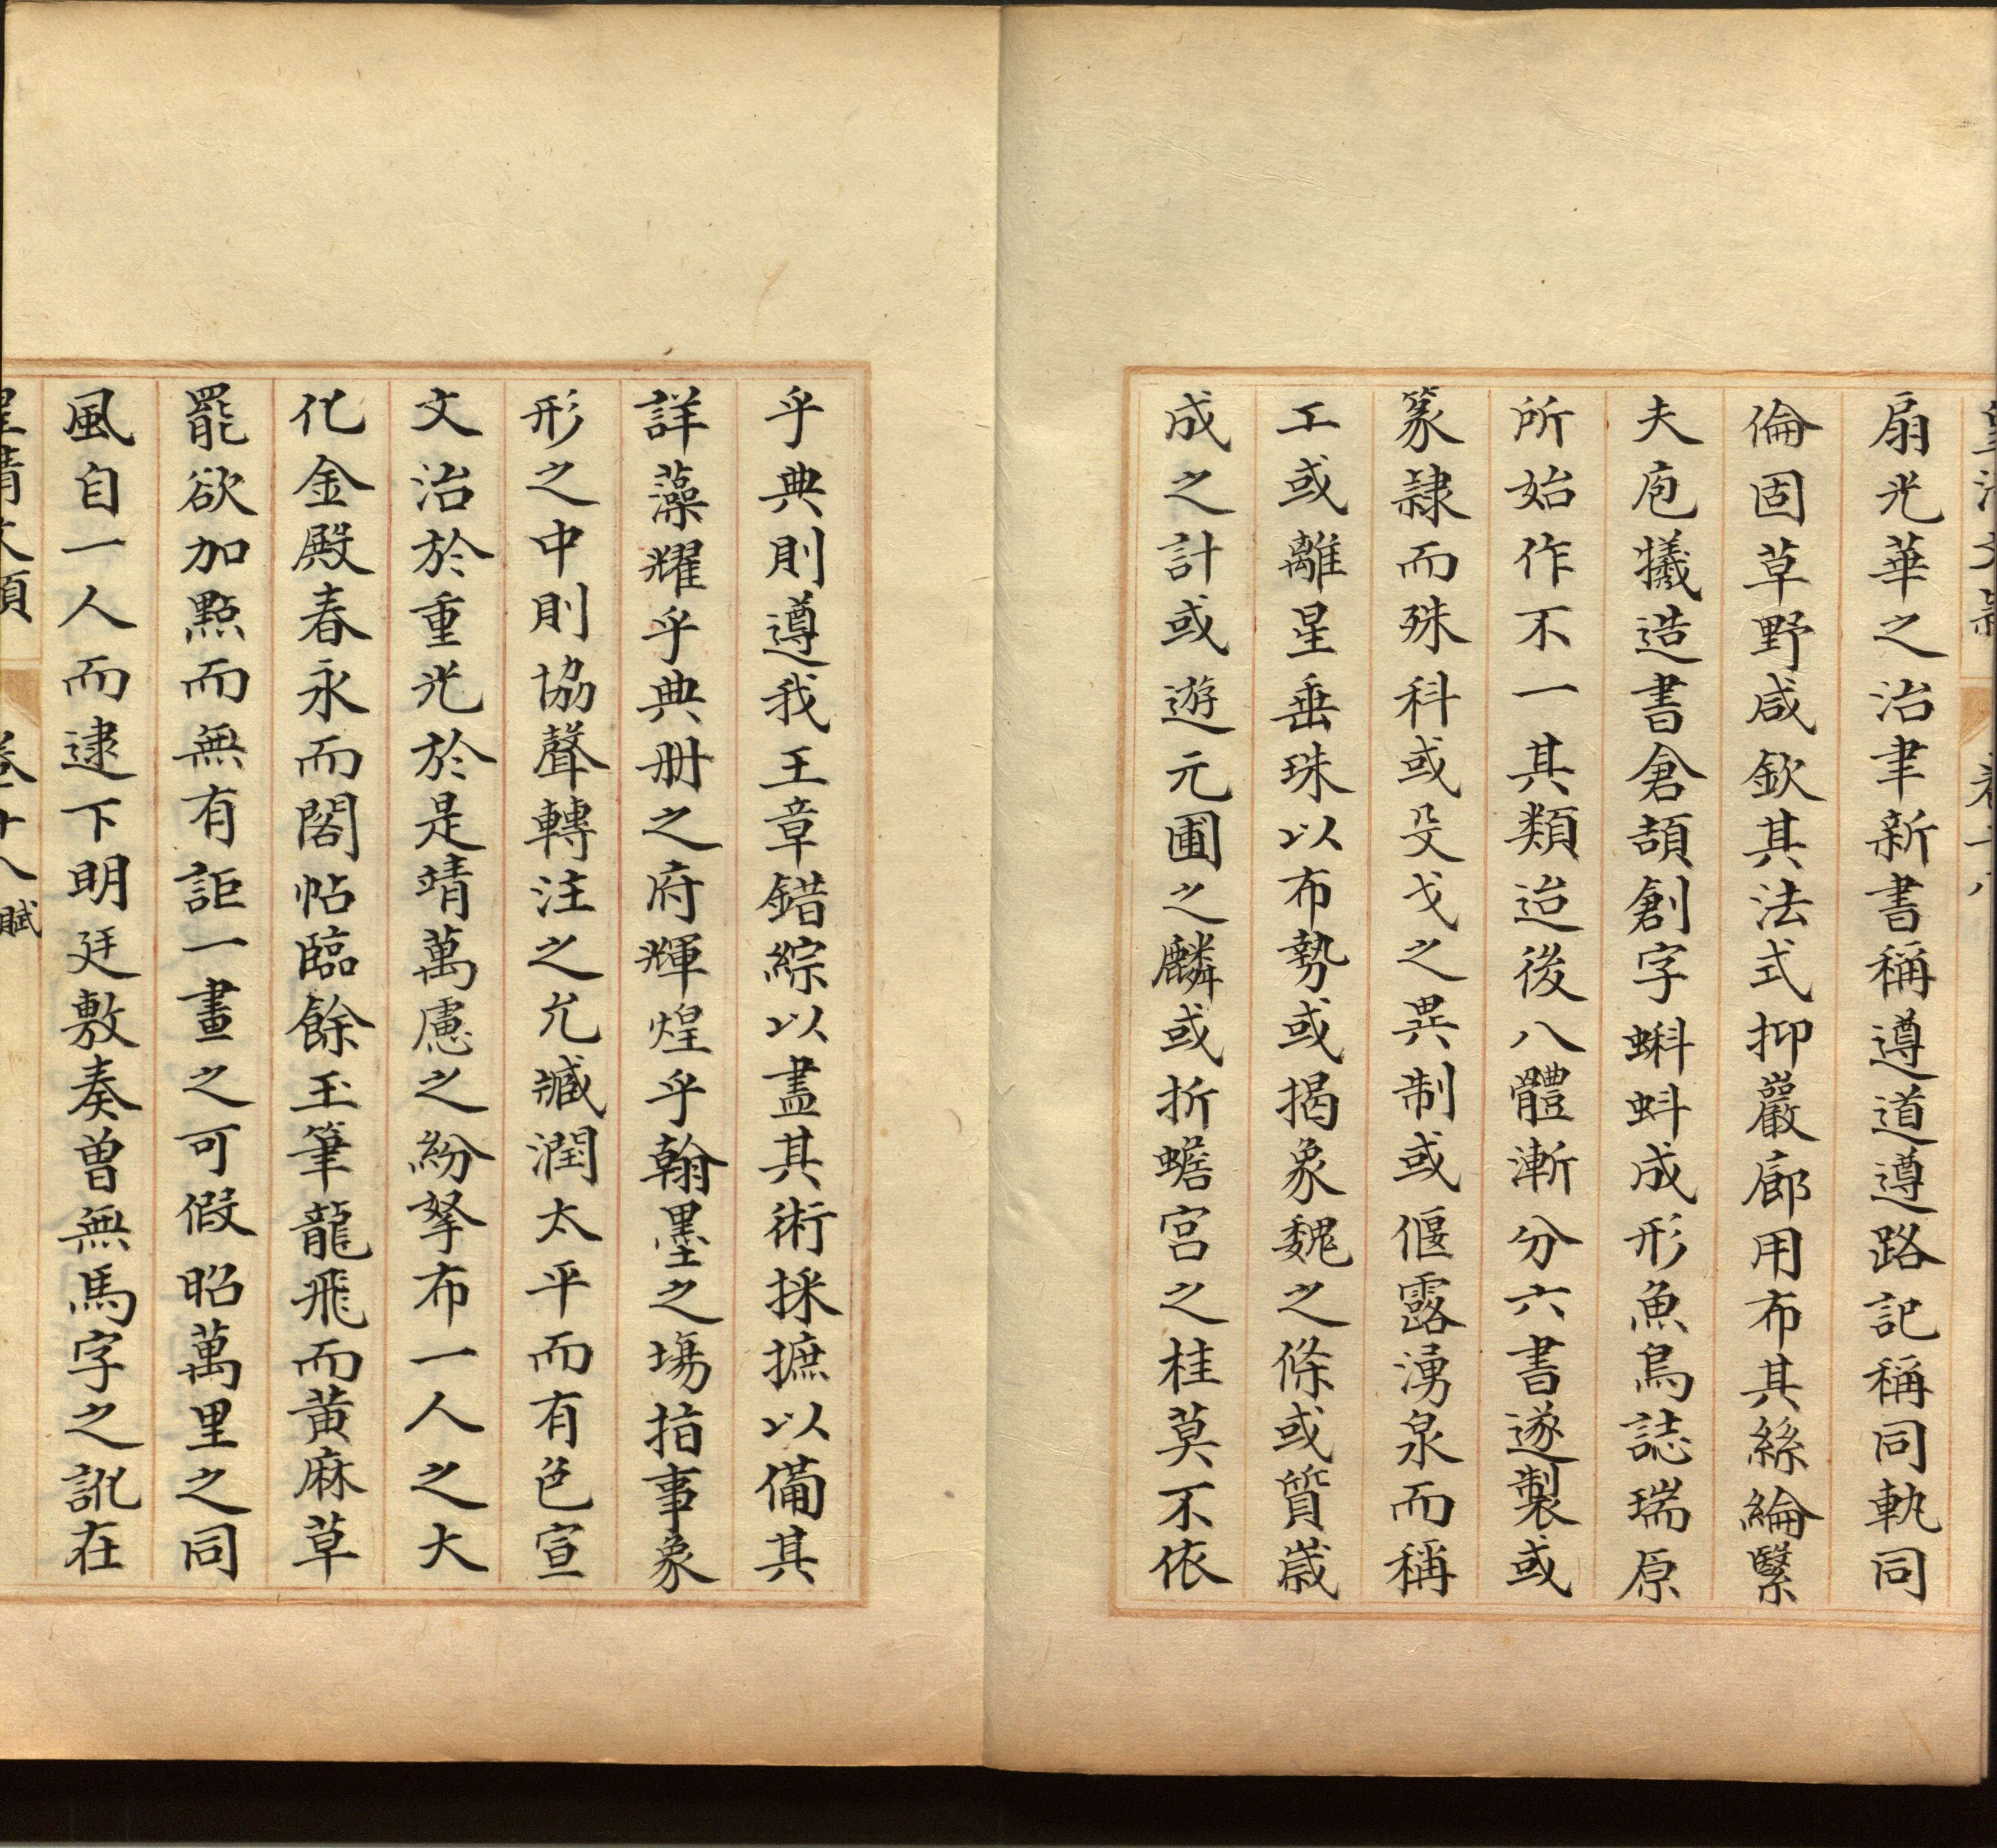 扇光華之治聿新書稱遵道遵路記稱同軌同
倫固草野咸欽其法式抑巖廊用布其絲綸緊
夫庖犧造書倉頡創字蝌蚪成形魚鳥誌瑞原
所始作不一其類迨後八體漸分六書遂製或
篆隸而殊科或殳戈之異制或偃露湧泉而稱
工或離星垂珠以布勢或揭象魏之條或質歲
成之計或遊元圃之麟或折蟾宮之桂莫不依
乎典則遵我王章錯綜以盡其術採摭以備其
詳藻耀乎典冊之府輝煌乎翰墨之場指事象
形之中則協聲轉注之允臧潤太平而有色宣
文治於重光於是靖萬慮之紛拏布一人之大
化金殿春永而閣帖臨餘玉筆龍飛而黃麻草
罷欲加點而無有詎一畫之可假昭萬里之同
風自一人而逮下明廷敷奏曾無馬字之訛在
皇清文穎 卷十八 賦